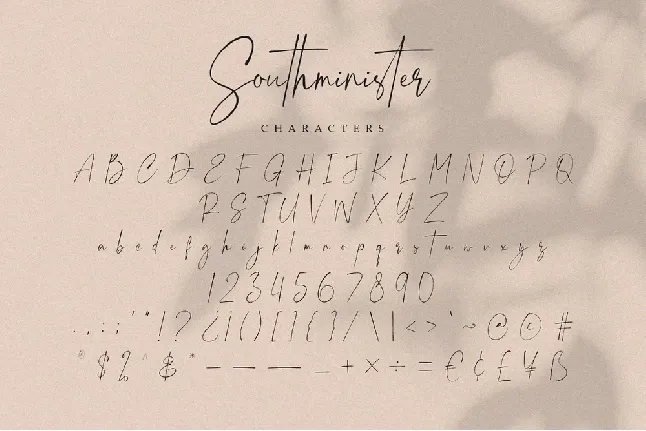 Southminister
CHARACTERS
A B C D E F G H I J K L M N O P Q
R S T U V W X Y Z
a b c d e f g h i j k l m n o p q r s t u v w x y z
1 2 3 4 5 6 7 8 9 0
. , : ; ' " ! ? ¿ ¡ ( ) [ ] { } / \ | < > ~ @ © #
® $ % ^ & * – — — _ + × ÷ = € ¢ £ ¥ ß